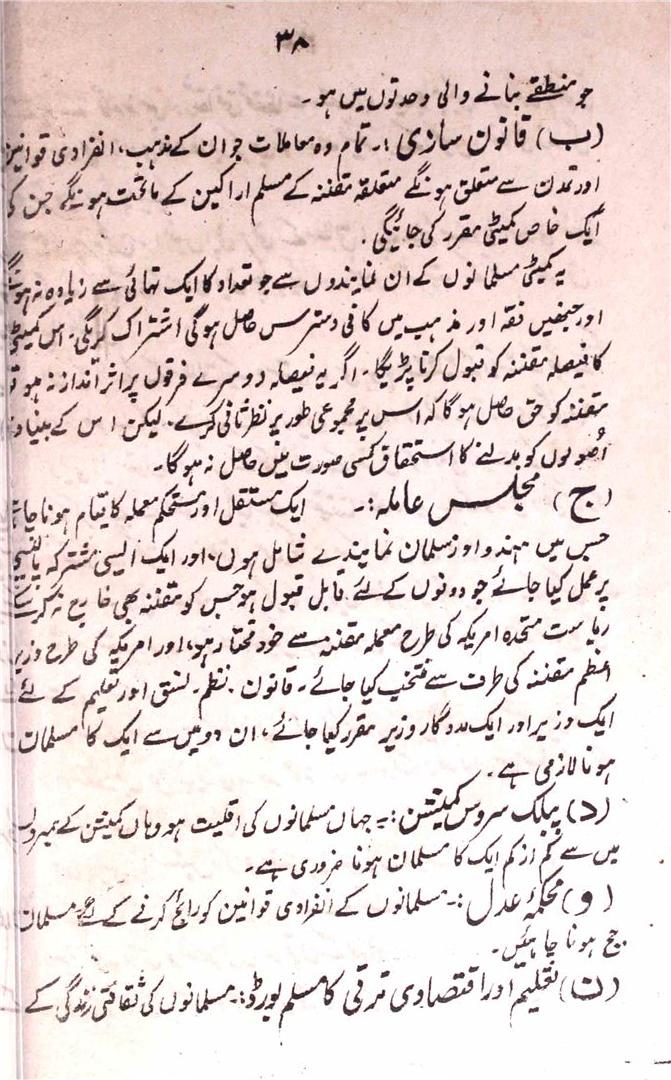 ۳۸
جو منطقے بنانے والی وحدتوں میں ہو۔
(ب) قانون سازی :۔ تمام وہ معاملات جو ان کے مذہب، انفرادی قوانین
اور تمدن سے متعلق ہونگے متعلقہ مقننہ کے مسلم اراکین کے ماتحت ہونگے جن کی
ایک خاص کمیٹی مقرر کی جائیگی۔
یہ کمیٹی مسلمانوں کے ان نمایندوں سے جو تعداد کا ایک تہائی سے زیادہ نہ ہونگے
اور جنھیں فقہ اور مذہب میں کافی دسترس حاصل ہوگی اشتراک کریگی۔ اس کمیٹی
کا فیصلہ مقننہ کو قبول کرنا پڑیگا۔ اگر یہ فیصلہ دوسرے فرقوں پر اثر انداز نہ ہو تو
مقننہ کو حق حاصل ہوگا کہ اس پر مجموعی طور پر نظر ثانی کرے۔ لیکن اس کے بنیادی
اُصولوں کو بدلنے کا استحقاق کسی صورت میں حاصل نہ ہوگا۔
(ج) مجلس عاملہ :۔ ایک مستقل اور مستحکم معملہ کا قیام ہونا
جس میں ہندو اور مسلمان نمایندے شامل ہوں، اور ایک ایسی مشترکہ پالیسی
پر عمل کیا جائے جو دونوں کے لئے قابل قبول ہو جس کو مقننہ بھی خارج نہ کر سکے
ریاست متحدہ امریکہ کی طرح معملہ مقننہ سے خود مختار ہو، اور امریکہ کی طرح وزیر
اعظم مقننہ کی طرف سے منتخب کیا جائے۔ قانون۔ نظم۔ نسق اور تعلیم کے لئے
ایک وزیر اور ایک مددگار وزیر مقرر کیا جائے، ان دو میں سے ایک کا مسلمان
ہونا لازمی ہے۔
(د) پبلک سروس کمیشن :۔ جہاں مسلمانوں کی اقلیت ہو وہاں کمیشن کے ممبروں
میں سے کم از کم ایک کا مسلمان ہونا ضروری ہے۔
(و) محکمۂ عدل :۔ مسلمانوں کے انفرادی قوانین کو رائج کرنے کے لئے مسلمان
جج ہونا چاہئیں۔
(ن) تعلیم اور اقتصادی ترقی کا مسلم بورڈ :۔ مسلمانوں کی ثقافتی زندگی کے